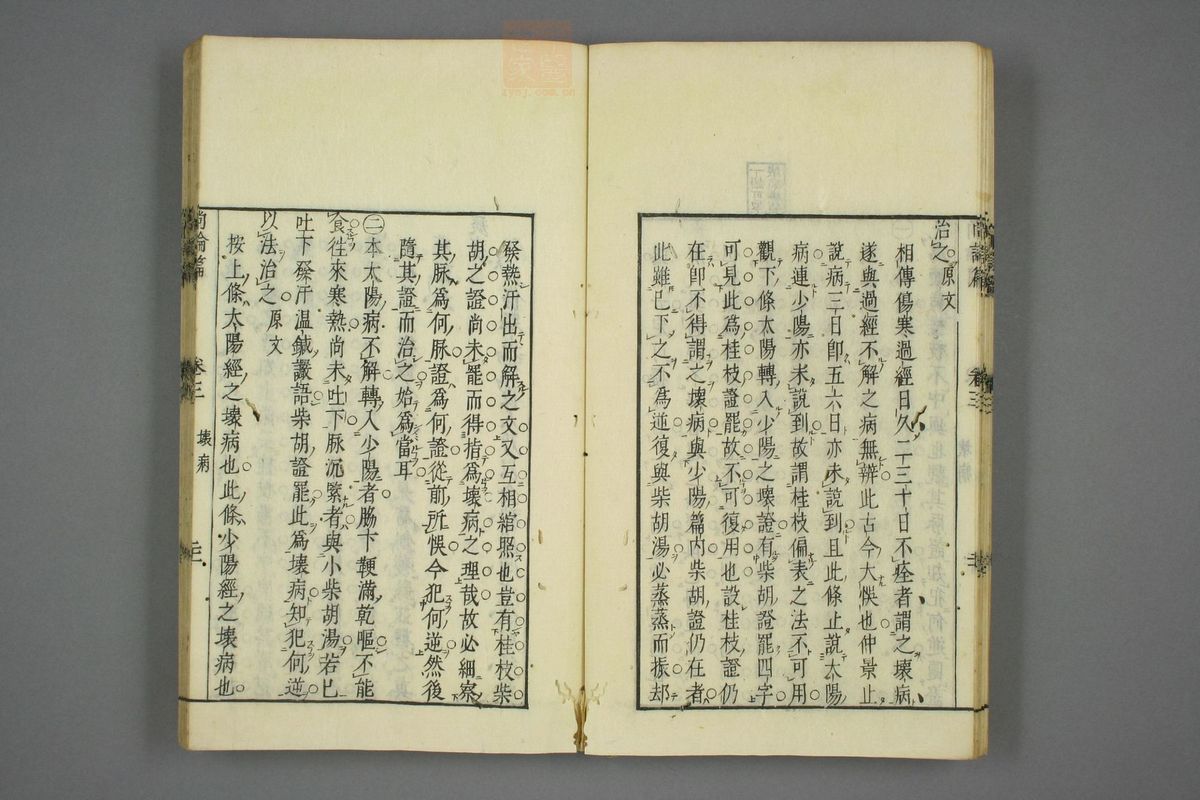 治之原文
相傳傷寒過經日久二三十日不痊者謂之壞病
遂與過經不解之病無辨此古今大悞也仲景止
說病三日卽五六日亦未說到且此條止說太陽
病連少陽亦未說到故謂桂枝偏表之法不可用
觀下條太陽轉入少陽之壞證有柴胡證罷四字
可見此爲桂枝證罷故不可復用也設桂枝證仍
在卽不得謂之壞病與少陽篇內柴胡證仍在者
此雖已下之不爲逆復與柴胡湯必蒸蒸而振却
發熱汗出而解之文又互相綰照也豈有桂枝柴
胡之證尚未罷而得指爲壞病之理哉故必細察
其脉爲何脉證爲何證從前所悞今犯何逆然後
隨其證而治之始爲當耳
㊁本太陽病不解轉入少陽者脇下鞕滿乾嘔不能
食往來寒熱尚未吐下脉沉緊者與小柴胡湯若已
吐下發汗温鍼讝語柴胡證罷此爲壞病知犯何逆
以法治之原文
按上條太陽經之壞病也此條少陽經之壞病也
尚論篇 卷三 壞病
醫家
zyyj.com.cn